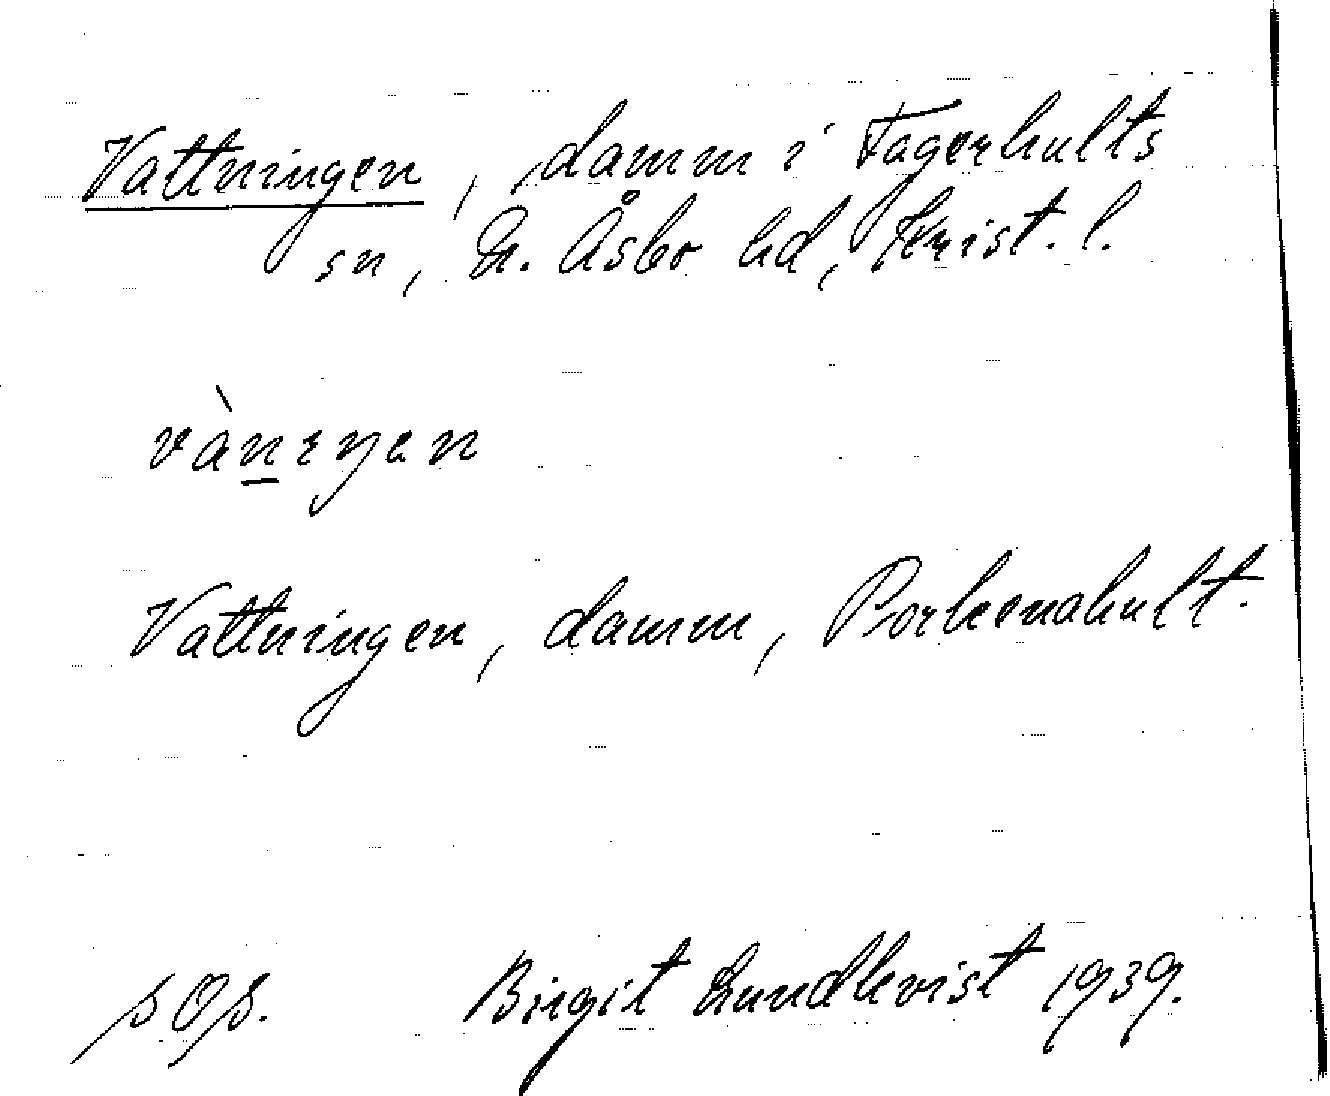 Vattningen, damm i Fagerhults
sn, N. Åsbo hd, Krist. l.
Vattningen, damm, Porkenahult.
Birgit Lundkvist 1939.